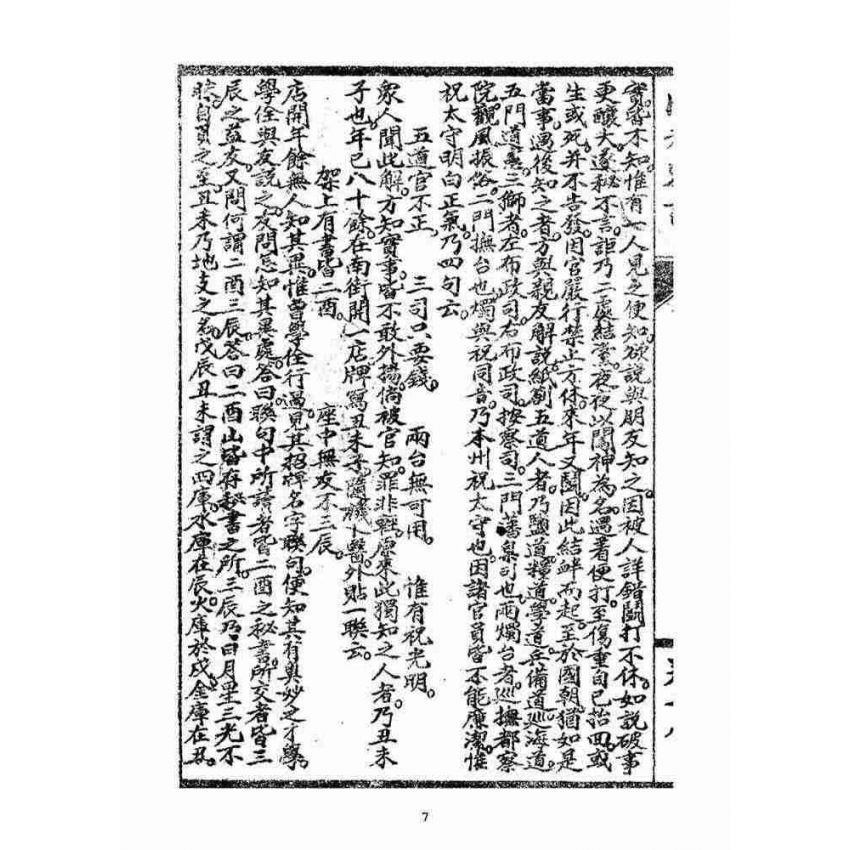 實皆不知。惟有一人見之便知。欲說與朋友知之。因被人詳錯鬭打不休。如說破事
更釀大。遂秘不言。詎乃二處結黨。夜夜以鬭神為名。遇着便打。至傷重自己招回。或
生或死。并不告發。因官嚴行禁止方休。來年又鬭。因此結衅而起。至於國朝猶如是。
當事過後知之者。方與親友解說。紙劄五道人者。乃鹽道糧道學道兵備道巡海道。
五門道。三獅者。左布政司右布政司按察司。三門藩臬司也。兩燭台者。巡撫都察
院。觀風振俗。二門撫台也。燭與祝同音。乃本州祝太守也。因諸官員皆不能廉潔。惟
祝太守明白正氣。乃四句云。
五道官不正。 三司只要錢。 兩台無可用。 惟有祝光明。
眾人聞此解。方知實事。皆不敢外揚。倘被官知。罪非輕。原來此獨知之人者。乃丑未
子也。年已八十餘。在南街開一店。牌寫丑未子隨機卜醫。外貼一聯云。
架上有書皆二酉。 座中無友不三辰。
店開年餘無人知其異。惟曾學佺行過。見其招牌名字聯句。便知其有奧妙之才學。
學佺與友說之。友問怎知其異處。答曰。聯句中所讀者皆二酉之秘書。所交者皆三
辰之益友。又問何謂二酉三辰。答曰。二酉山皆存秘書之所。三辰乃日月星三光。不
自負之至。丑未乃地支之名。戊辰丑未謂之四庫。水庫在辰。火庫於戌。金庫在丑。
7